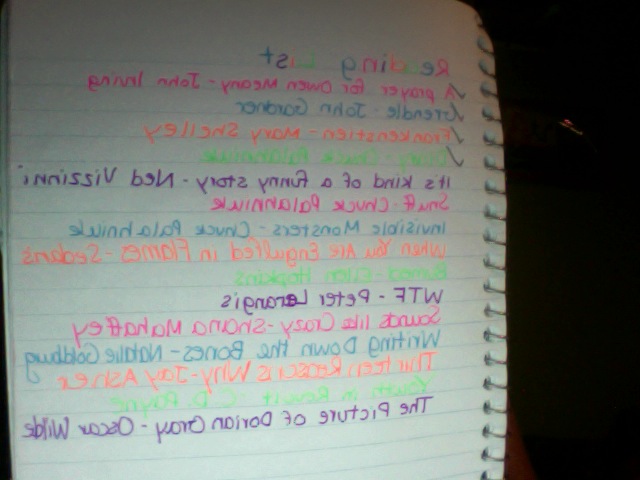 Reading List
✓A prayer for Owen Meany - John Irving
✓Grendle - John Gardner
✓Frankenstien - Mary Shelley
✓ - Chuck Palahniuk
It's kind of a funny story - Ned Vizzinni
Snuff - Chuck Palahniuk
Invisible Monsters - Chuck Palahniuk
When You Are Engulfed in Flames - Sedaris
Burned - Ellen Hopkins
WTF - Peter Lerangis
Sounds like Crazy - Shana Mahaffey
Writing Down the Bones - Natalie Goldburg
Thirteen Reasons Why - Jay Asher
Youth in Revolt - C.D. Payne
The Picture of Dorian Gray - Oscar Wilde